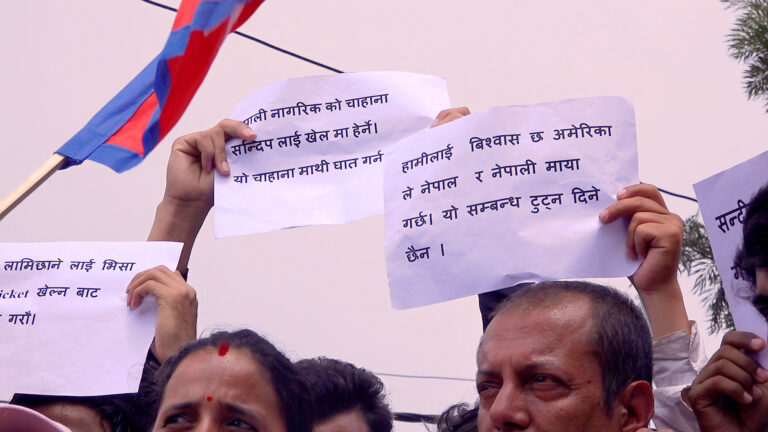 नागरिक को चाहाना
सन्दिप लाई खेल मा हेर्ने।
यो चाहाना माथी घात गर्न
हामीलाई बिश्वास छ अमेरिका
ले नेपाल र नेपाली माया
गर्छ। यो सम्बन्ध टुट्न दिने
छैन ।
लामिछाने लाई भिसा
icket खेल्न बाट
गरौं।